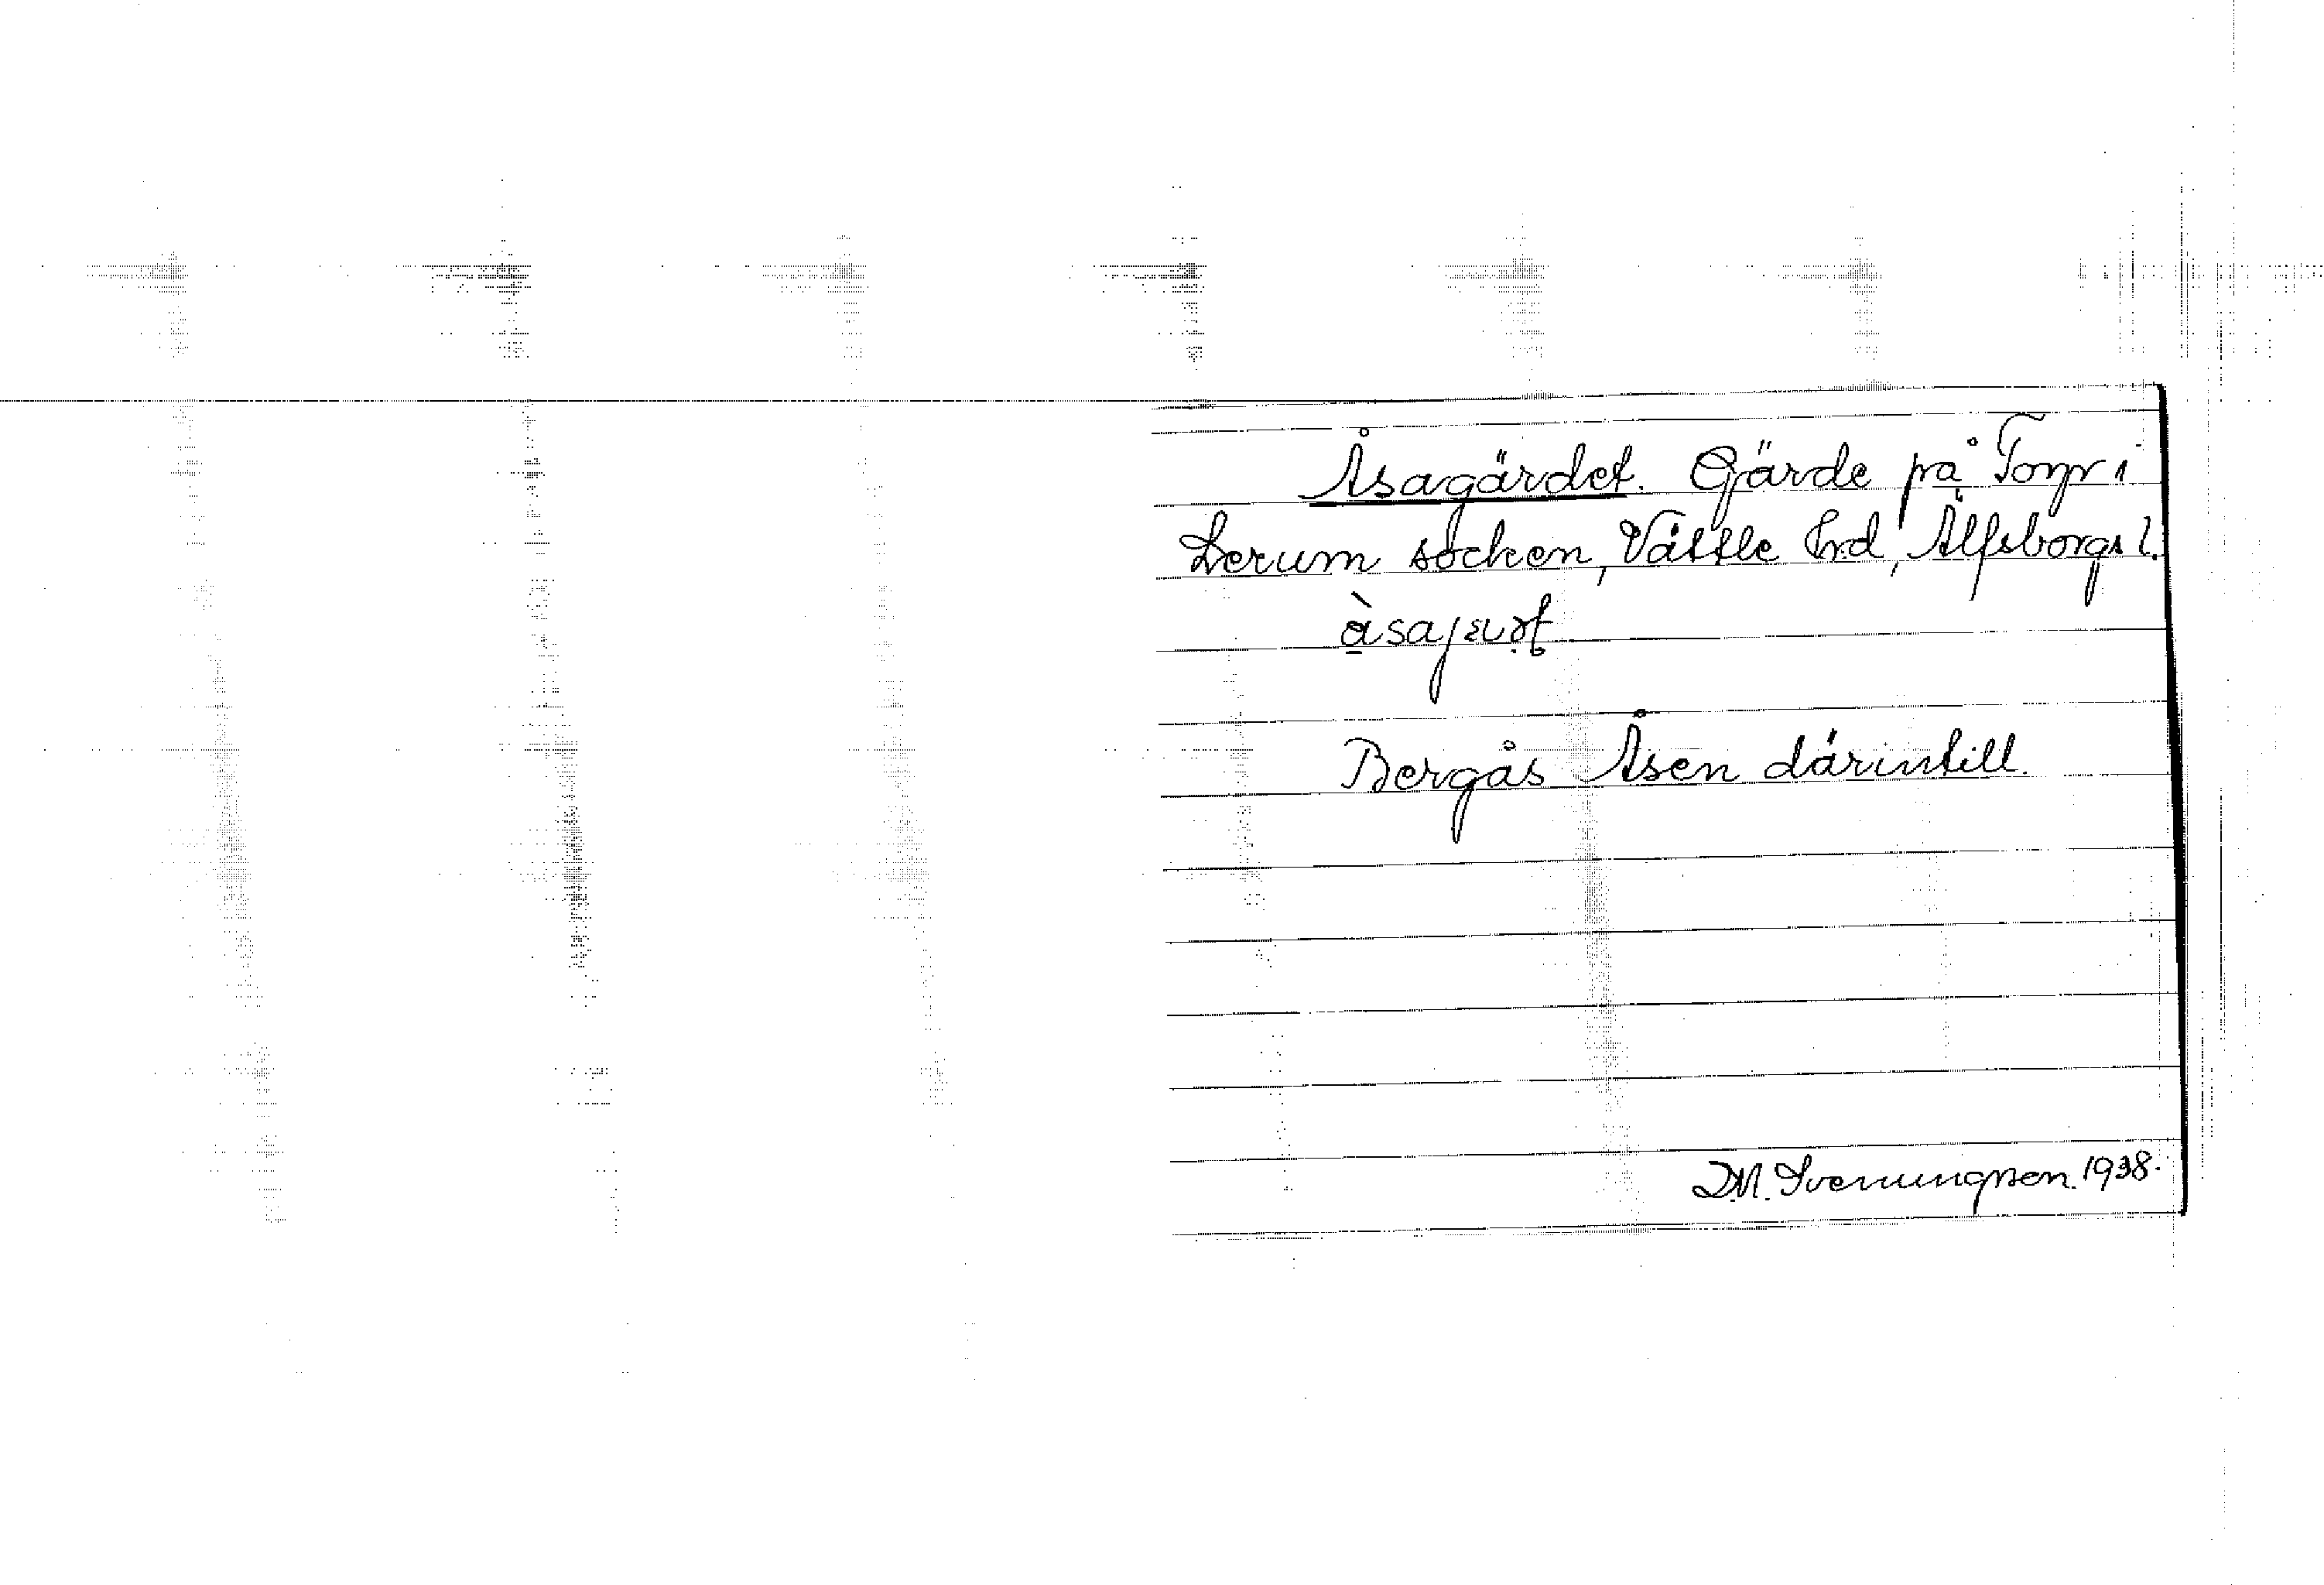 Åsagärdet. Gärde på Torp i
Lerum socken, Vättle hd, Älfsborgs l.
Bergås Åsen därintill.
D.M. Svenungsson. 1938.